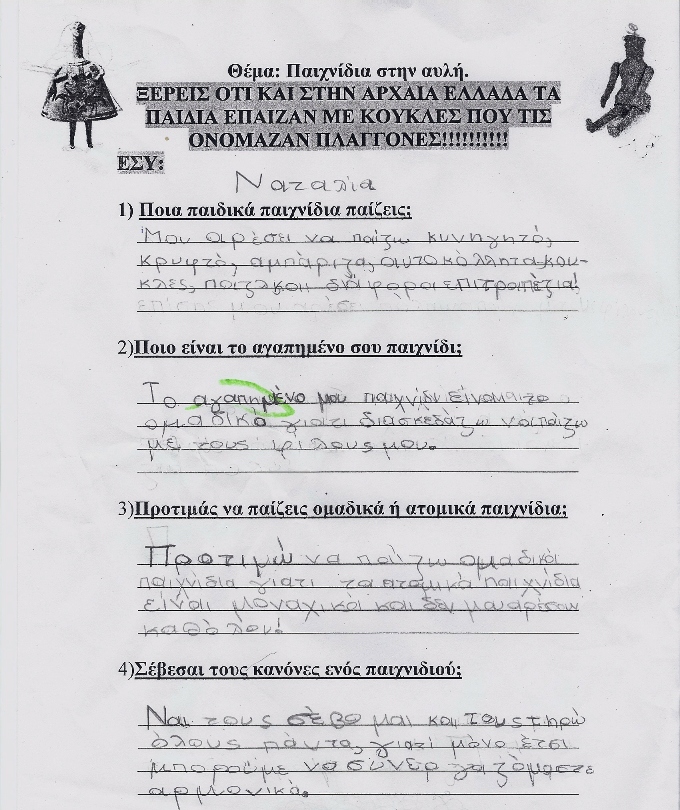 Θέμα: Παιχνίδια στην αυλή.
ΞΕΡΕΙΣ ΟΤΙ ΚΑΙ ΣΤΗΝ ΑΡΧΑΙΑ ΕΛΛΑΔΑ ΤΑ
ΠΑΙΔΙΑ ΕΠΑΙΖΑΝ ΜΕ ΚΟΥΚΛΕΣ ΠΟΥ ΤΙΣ
ΟΝΟΜΑΖΑΝ ΠΛΑΓΓΟΝΕΣ!!!!!!!!!!
ΕΣΥ:
Ναταλία
1) Ποια παιδικά παιχνίδια παίζεις;
Μου αρέσει να παίζω κυνηγητό,
κρυφτό, αμπάριζα, αυτοκόλλητα, κου-
κλες, παζλ και διάφορα επιτραπέζια!
2)Ποιο είναι το αγαπημένο σου παιχνίδι;
Το αγαπημένο μου παιχνίδι είναι το
ομαδικό γιατί διασκεδάζω να παίζω
με τους φίλους μου.
3)Προτιμάς να παίζεις ομαδικά ή ατομικά παιχνίδια;
Προτιμώ να παίζω ομαδικά
παιχνίδια γιατί τα ατομικά παιχνίδια
είναι μοναχικά και δεν μου αρέσουν
καθόλου!
4)Σέβεσαι τους κανόνες ενός παιχνιδιού;
Ναι τους σέβομαι και τους τηρώ
όλους πάντα, γιατί μόνο έτσι
μπορούμε να συνεργαζόμαστε
αρμονικά.